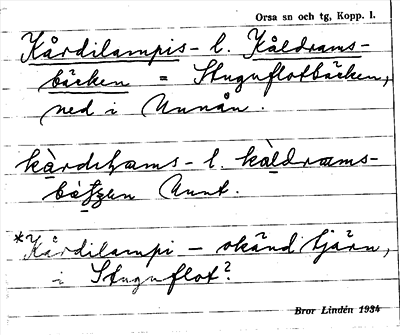 Orsa sn och tg, Kopp. l.
Kårdilampis- l. Kåldrams-
bäcken = Stuguflotbäcken,
ned i Unnån.
kàrdɩlams- l. kàldrams-
Unnt.
*Kårdilampi – okänd tjärn,
i Stuguflot?
Bror Lindén 1934